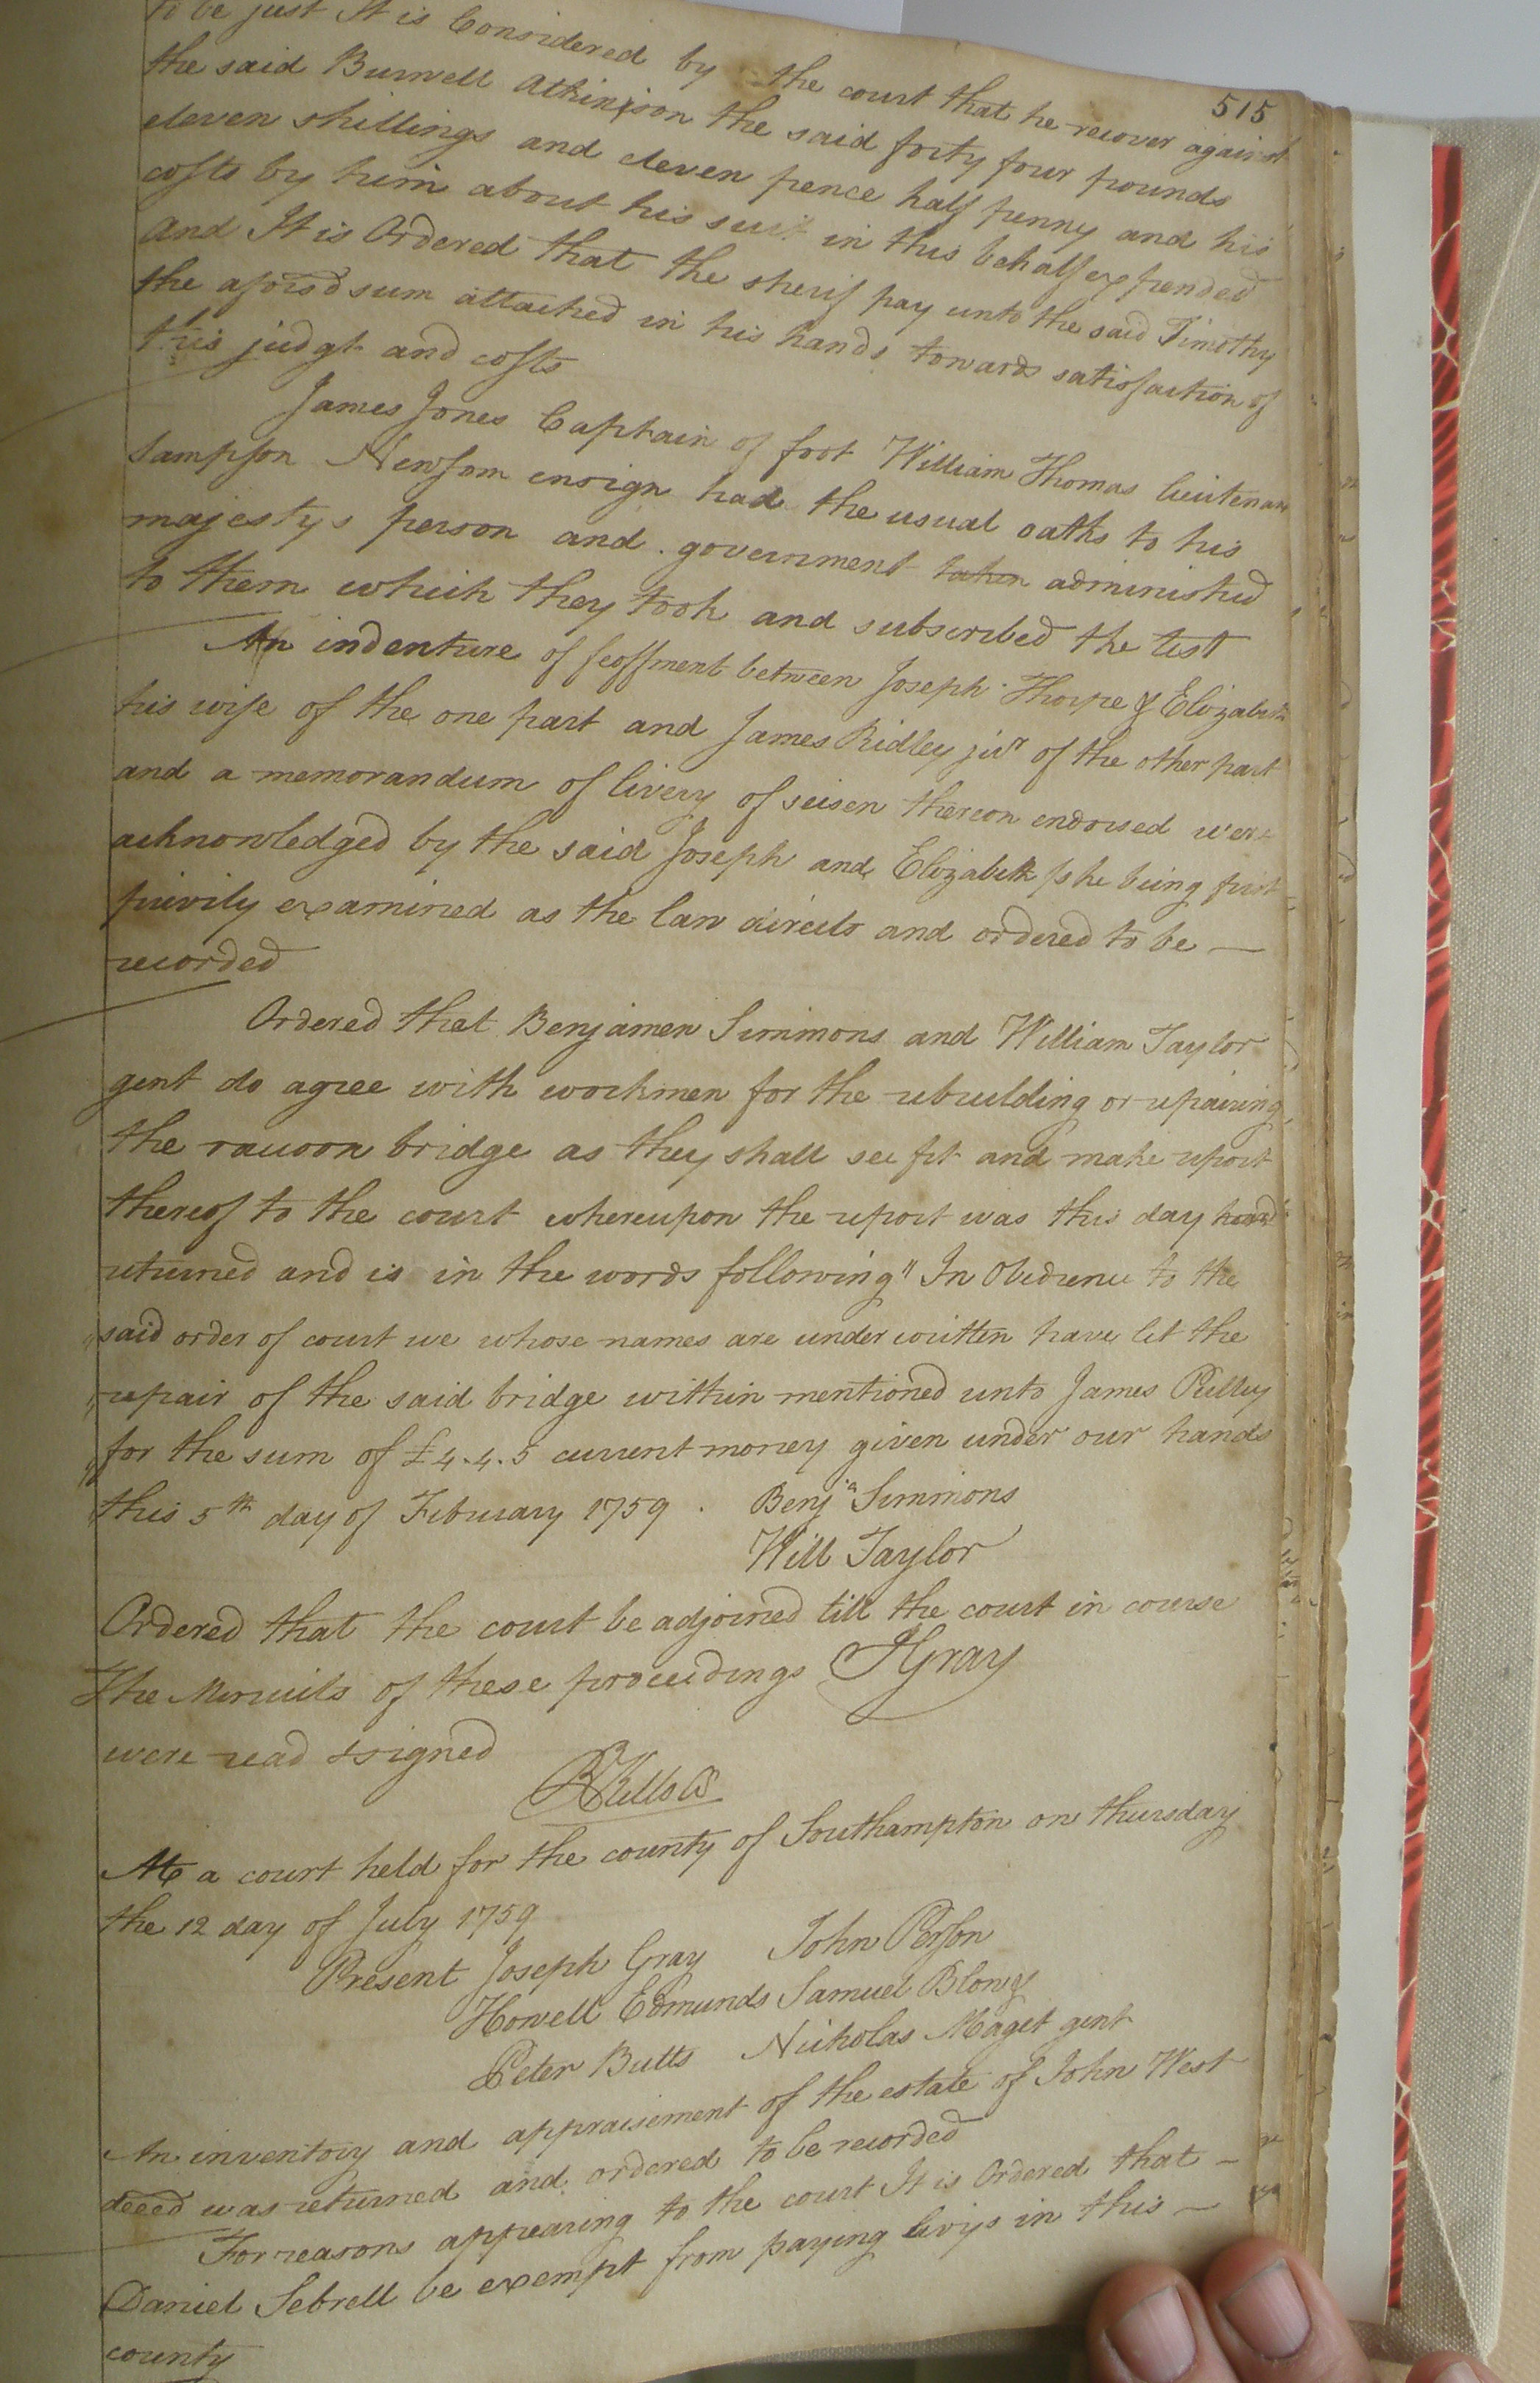 515
to be just It is Considered by the court that he recover against
the said Burwell Atkinson the said forty four pounds
eleven shillings and eleven pence half penny and his
costs by him about his suit in this behalf expended
and It is Ordered that the sherif pay unto the said Timothy
the aforesd sum attached in his hands towards satisfaction of
this judgt and costs
James Jones Captain of foot William Thomas lieutenan
Sampson Newsom ensign had the usual oaths to his
majestys person and government taken administred
to them which they took and subscribed the test
An indenture of feoffment between Joseph Thorpe & Elizabeth
his wife of the one part and James Ridley junr of the other part
and a memorandum of livery of seisen thereon endorsed were
acknowledged by the said Joseph and Elizabeth she being first
privily examined as the law directs and ordered to be —
recorded
Ordered that Benjamen Simmons and William Taylor
gent do agree with workmen for the rebuilding or repairing
the racoon bridge as they shall see fit and make report
thereof to the court whereupon the report was this day
returned and is in the words following " In Obedience to the
" said order of court we whose names are under written have let the
" repair of the said bridge within mentioned unto James Pulley
" for the sum of £4.4.5 current money given under our hands
" this 5th day of February 1759. Benja Simmons
Will Taylor
Ordered that the court be adjoined till the court in course
The Minuits of these proceedings JGray
were read & signed
RKello CS
At a court held for the county of Southampton on thursday
the 12 day of July 1759
Present Joseph Gray John Person
Howell Edmunds Samuel Blow &
Peter Butts Nicholas Maget gent
An inventory and appraisement of the estate of John West
deced was returned and ordered to be recorded
For reasons appearing to the court It is Ordered that —
Daniel Sebrell be exempt from paying levys in this —
county